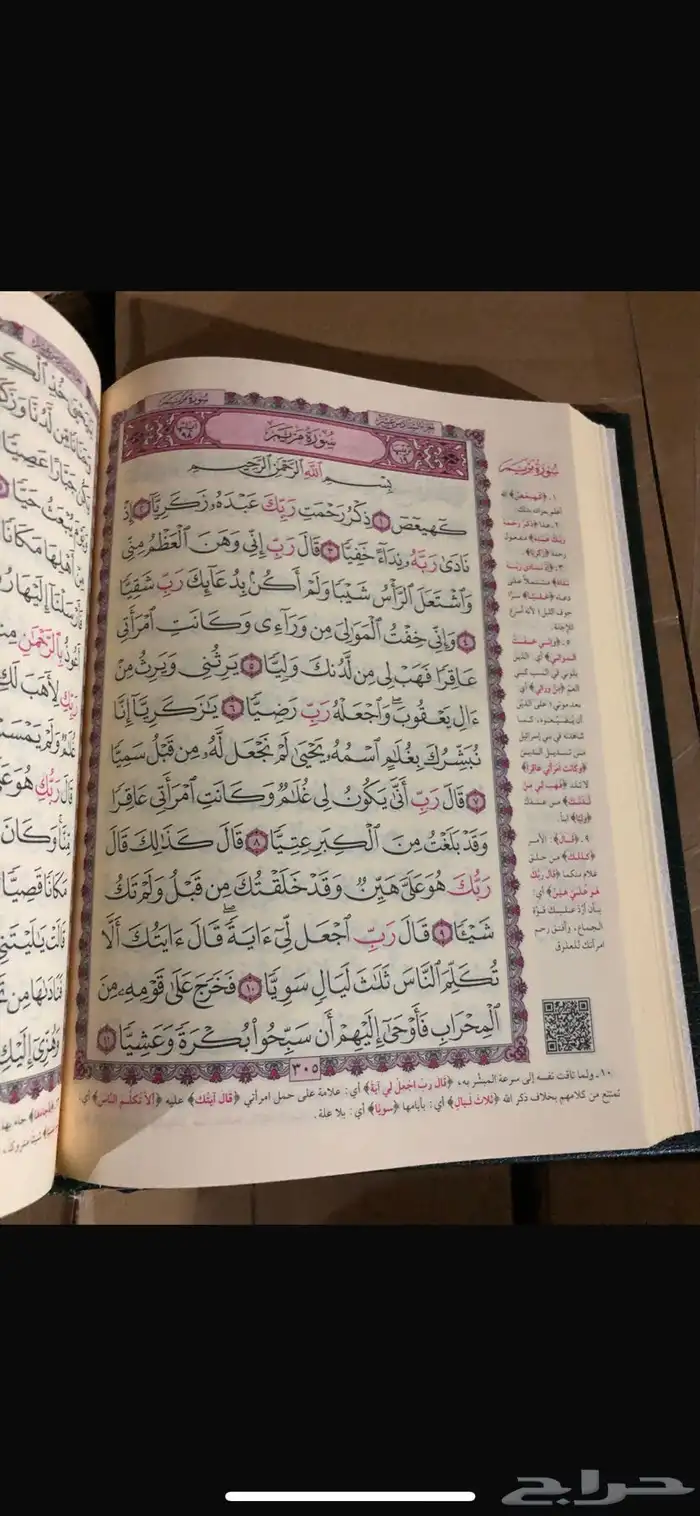 سُورَةُ مَرْيَم
سُورَةُ مَرْيَمَ
بِسْمِ ٱللَّهِ ٱلرَّحْمَٰنِ ٱلرَّحِيمِ
كٓهيعٓصٓ ١ ذِكْرُ رَحْمَتِ رَبِّكَ عَبْدَهُۥ زَكَرِيَّآ ٢ إِذْ
نَادَىٰ رَبَّهُۥ نِدَآءً خَفِيًّا ٣ قَالَ رَبِّ إِنِّي وَهَنَ ٱلْعَظْمُ مِنِّي
وَٱشْتَعَلَ ٱلرَّأْسُ شَيْبًا وَلَمْ أَكُنۢ بِدُعَآئِكَ رَبِّ شَقِيًّا
٤ وَإِنِّي خِفْتُ ٱلْمَوَٰلِيَ مِن وَرَآءِي وَكَانَتِ ٱمْرَأَتِي
عَاقِرًا فَهَبْ لِي مِن لَّدُنكَ وَلِيًّا ٥ يَرِثُنِي وَيَرِثُ مِنْ
ءَالِ يَعْقُوبَۖ وَٱجْعَلْهُ رَبِّ رَضِيًّا ٦ يَٰزَكَرِيَّآ إِنَّا
نُبَشِّرُكَ بِغُلَٰمٍ ٱسْمُهُۥ يَحْيَىٰ لَمْ نَجْعَل لَّهُۥ مِن قَبْلُ سَمِيًّا
٧ قَالَ رَبِّ أَنَّىٰ يَكُونُ لِي غُلَٰمٌ وَكَانَتِ ٱمْرَأَتِي عَاقِرًا
وَقَدْ بَلَغْتُ مِنَ ٱلْكِبَرِ عِتِيًّا ٨ قَالَ كَذَٰلِكَ قَالَ
رَبُّكَ هُوَ عَلَيَّ هَيِّنٌ وَقَدْ خَلَقْتُكَ مِن قَبْلُ وَلَمْ تَكُ
شَيْـًٔا ٩ قَالَ رَبِّ ٱجْعَل لِّيٓ ءَايَةًۖ قَالَ ءَايَتُكَ أَلَّا
تُكَلِّمَ ٱلنَّاسَ ثَلَٰثَ لَيَالٍ سَوِيًّا ١٠ فَخَرَجَ عَلَىٰ قَوْمِهِۦ مِنَ
ٱلْمِحْرَابِ فَأَوْحَىٰٓ إِلَيْهِمْ أَن سَبِّحُوا۟ بُكْرَةً وَعَشِيًّا ١١
٣٠٥
سُورَةُ مَرْيَم
١ـ ﴿كهيعص﴾ الله
أعلم بمراده بذلك
٢ـ هذا ﴿ذكر رحمة
ربك عبده﴾ مفعول
رحمة ﴿زكريا﴾
٣ـ ﴿إذ نادى ربه
نداء﴾ مشتملاً على
دعاء ﴿خفيا﴾ سرًا
جوف الليل؛ لأنه أسرع
للإجابة.
٥ـ ﴿وإني خفت
الموالي﴾ أي: الذين
يلوني في النسب كبني
العم ﴿من ورائي﴾ أي:
بعد موتي؛ على الدين
أن يضيعوه، كما
شاهدته في بني إسرائيل
من تبديل الدين
﴿وكانت امرأتي عاقرا﴾
لا تلد ﴿فهب لي من
لدنك﴾ من عندك
﴿وليا﴾ ابنا.
٩ـ ﴿قال﴾: الأمر
﴿كذلك﴾ من خلق
غلام منكما ﴿قال ربك
هو علي هين﴾ أي:
بأن أرد عليك قوة
الجماع، وأفتق رحم
امرأتك للعلوق
١٠ـ ولما تاقت نفسه إلى سرعة المبشر به، ﴿قال رب اجعل لي آية﴾ أي: علامة على حمل امرأتي ﴿قال آيتك﴾ عليه ﴿ألا تكلم الناس﴾ أي:
تمتنع من كلامهم بخلاف ذكر الله ﴿ثلاث ليال﴾ أي: بأيامها ﴿سويا﴾ أي: بلا علة.
حراج